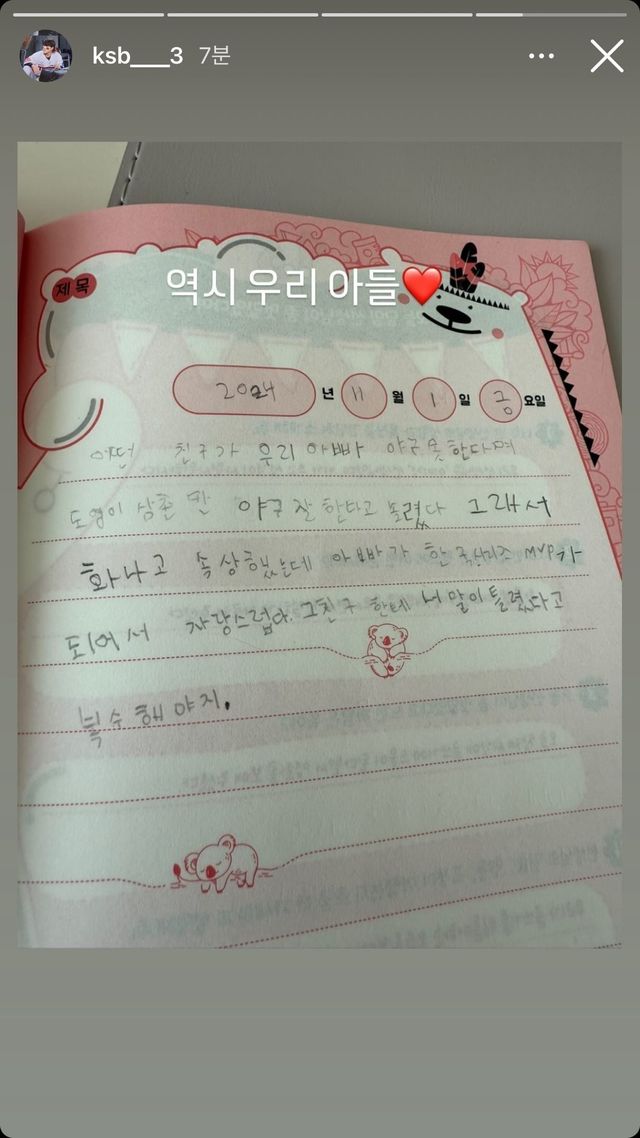 ksb___3 7분
역시 우리 아들❤️
제목
2024 년 11 월 1 일 금 요일
어떤 친구가 우리 아빠 야구 못한다며
도영이 삼촌 만 야구 잘 한다고 놀렸다 그래서
화나고 속상했는데 아빠가 한국시리즈 MVP가
되어서 자랑스럽다. 그친구 한테 너 말이 틀렸다고
복수해야지.